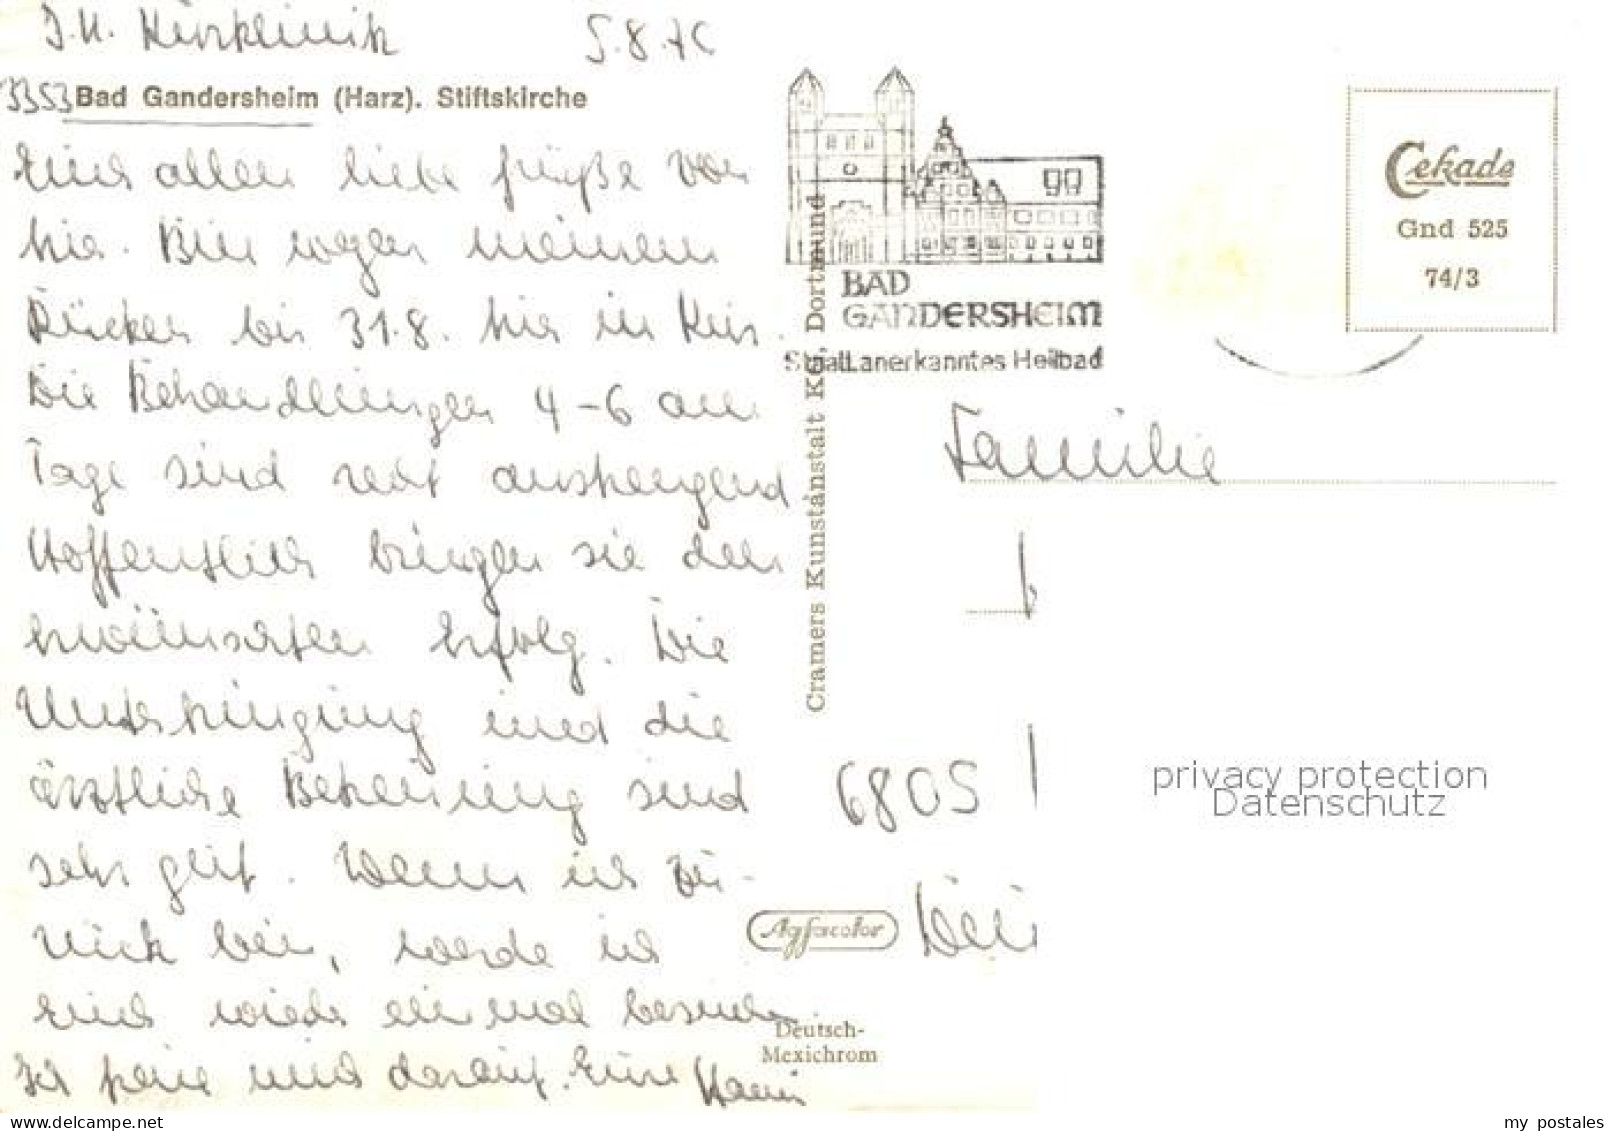 Kurklinik 5.8.76
3353 Bad Gandersheim (Harz). Stiftskirche
Euch allen liebe Grüße von
hier. Bin wegen meinem
Rücken bis 31.8. hier in Kur.
Die Behandlungen 4-6 am
Tage sind recht anstrengend
Hoffentlich bringen sie den
erwünschten Erfolg. Die
Unterbringung und die
ärztliche Betreuung sind
sehr gut. Wenn ich zu-
rück bin, werde ich
Euch wieder einmal besuchen
Ich freue mich darauf. Eure
Cramers Kunstanstalt KG, Dortmund
BAD
GANDERSHEIM
Staatl. anerkanntes Heilbad
Cekade
Gnd 525
74/3
Familie
6805
privacy protection
Datenschutz
Agfacolor
Deutsch-
Mexichrom
delcampe.net
my_postales